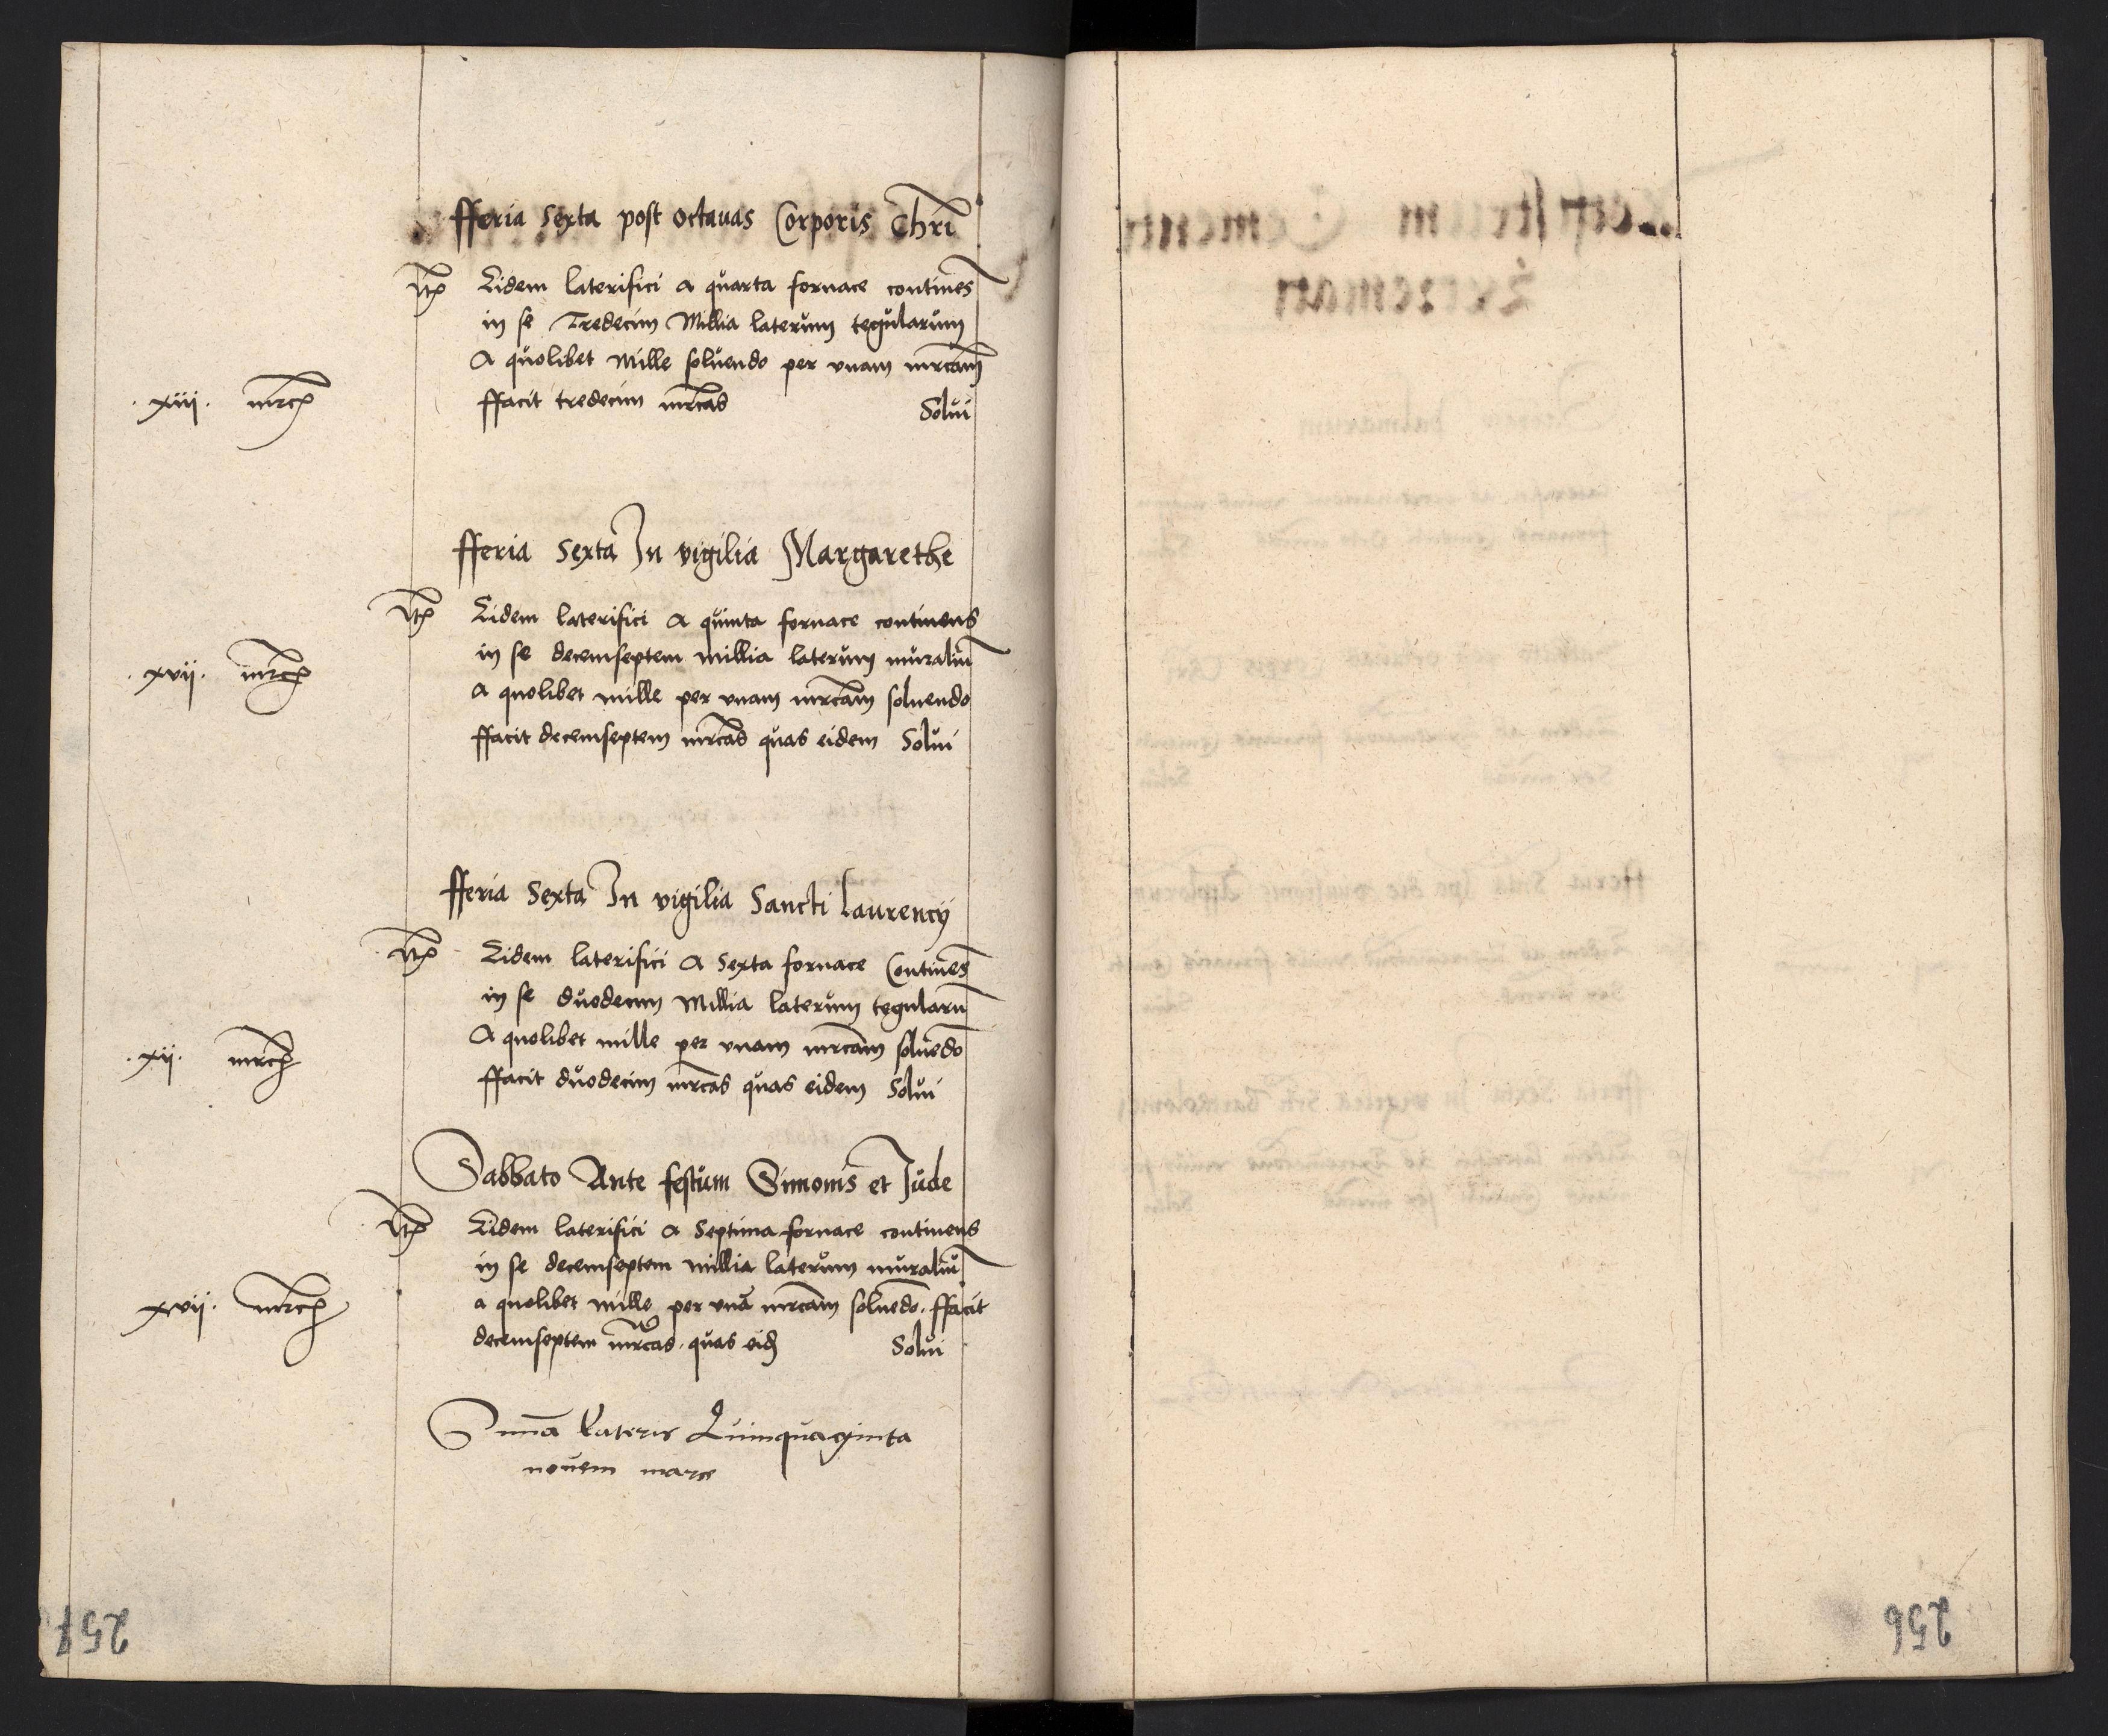 fferia Sexta post octauas Corporis Chri
Eidem laterifici a quarta fornace contines
in se Tredecim Millia laterum tegularum
A quolibet Mille soluendo per vnam mrcam
.xiii. mrc
ffacit tredecim mrcas Solui
fferia Sexta In vigilia Margarethe
Eidem laterifici a quinta fornace continens
in se decemseptem millia laterum muraliu
.xvii. mrc
A quolibet mille per vnam mrcam soluendo
ffacit decemseptem mrcas quas eidem Solui
fferia Sexta In vigilia Sancti Laurencij
Eidem laterifici a Sexta fornace Contines
in se duodecim Millia laterum tegularu
A quolibet mille per vnam mrcam soluedo
.xii. mrc
ffacit duodecim mrcas quas eidem Solui
Sabbato Ante festum Simonis et Jude
Eidem laterifici a Septima fornace continens
in se decemseptem millia laterum muraliu
a quolibet mille per vna mrcam soluedo. ffacit
xvii. mrc
decemseptem mrcas. quas eid Solui
Suma Lateris Quinquaginta
nouem marce
257
256